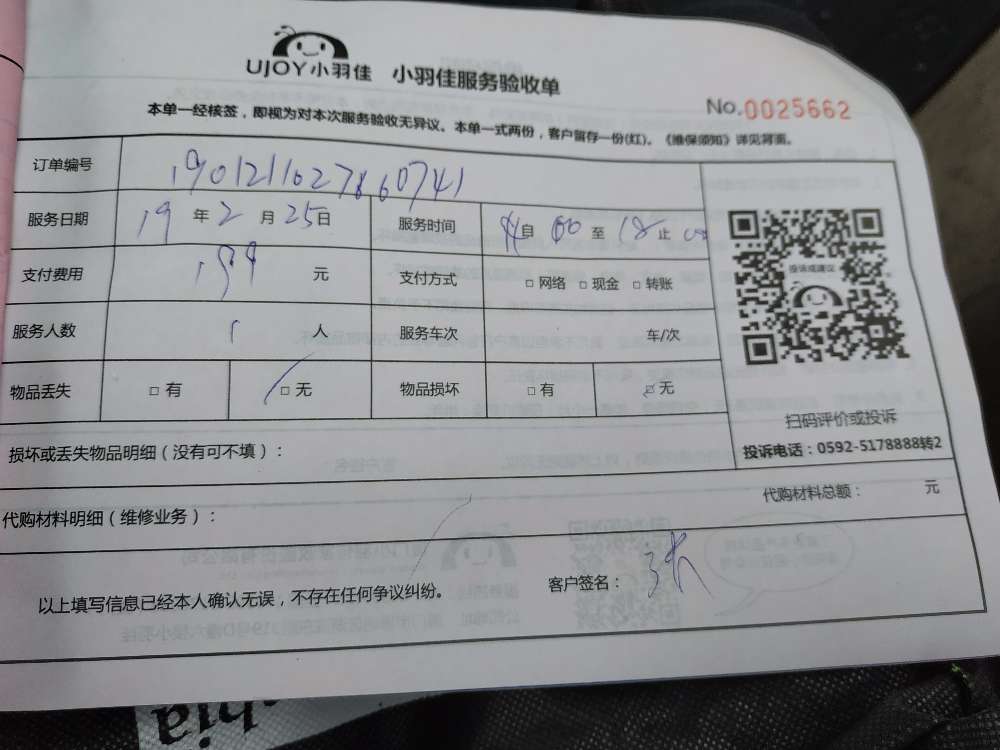 UJOY小羽佳 小羽佳服务验收单
No.0025662
本单一经核签，即视为对本次服务验收无异议。本单一式两份，客户留存一份(红)。《维保须知》详见背面。
订单编号 1901211627860741
服务日期 19年2月25日 服务时间 自00至18止00
支付费用 199元 支付方式 □网络 □现金 □转账
服务人数 1人 服务车次 车/次
物品丢失 □有 □无 物品损坏 □有 □无
投诉或建议
扫码评价或投诉
投诉电话：0592-5178888转2
损坏或丢失物品明细（没有可不填）：
代购材料总额： 元
代购材料明细（维修业务）：
以上填写信息已经本人确认无误，不存在任何争议纠纷。
客户签名： 张
hia